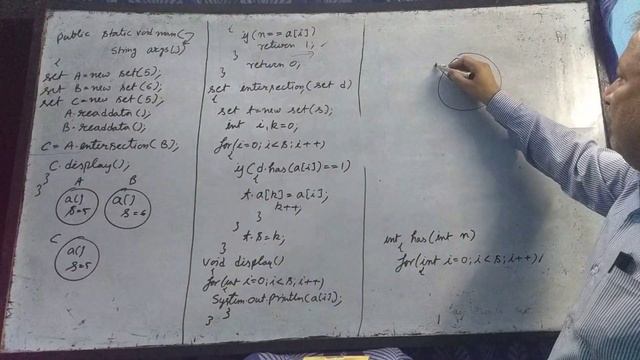 public static void main(
String args[])
{
set A=new set(5);
set B=new set(6);
set C=new set(5);
A.readdata();
B.readdata();
C = A.intersection(B);
C.display();
}
}
A B
a[] a[]
s=5 s=6
C
a[]
s=5
{
if(n==a[i])
return 1;
}
return 0;
}
set intersection(set d)
{
set t=new set(s);
int i,k=0;
for(i=0;i<s;i++)
{
if(d.has(a[i])==1)
{
t.a[k]=a[i];
k++;
}
}
t.s=k;
}
void display()
{
for(int i=0;i<s;i++)
{
System.out.println(a[i]);
}
}
int has(int n)
{
for(int i=0;i<s;i++)
{